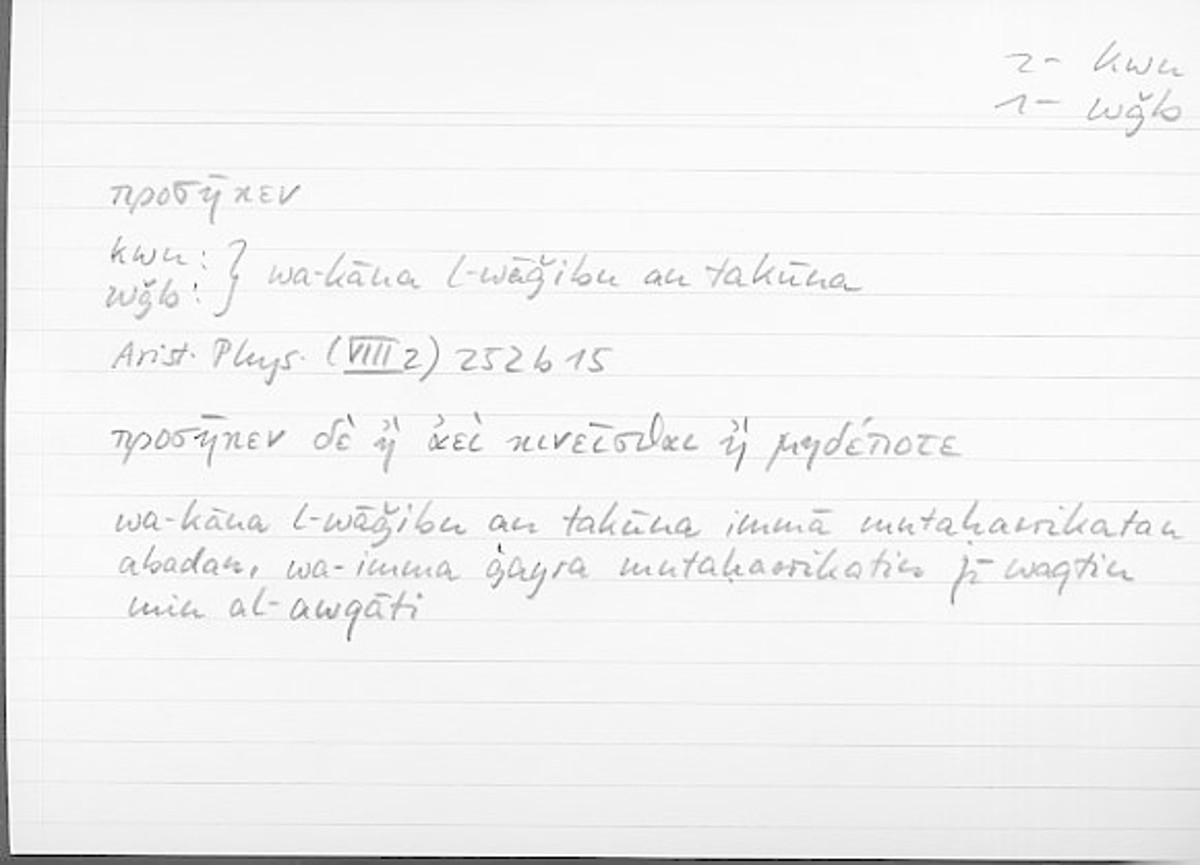 2- kwn
1- wǧb
προσῆκεν
kwn: }
wǧb: } wa-kāna l-wāǧibu an takūna
Arist. Phys. (VIII 2) 252 b 15
προσῆκεν δὲ ἢ ἀεὶ κινεῖσθαι ἢ μηδέποτε
wa-kāna l-wāǧibu an takūna immā mutaḥarrikatan
abadan, wa-imma ġayra mutaḥarrikatin fī waqtin
min al-awqāti